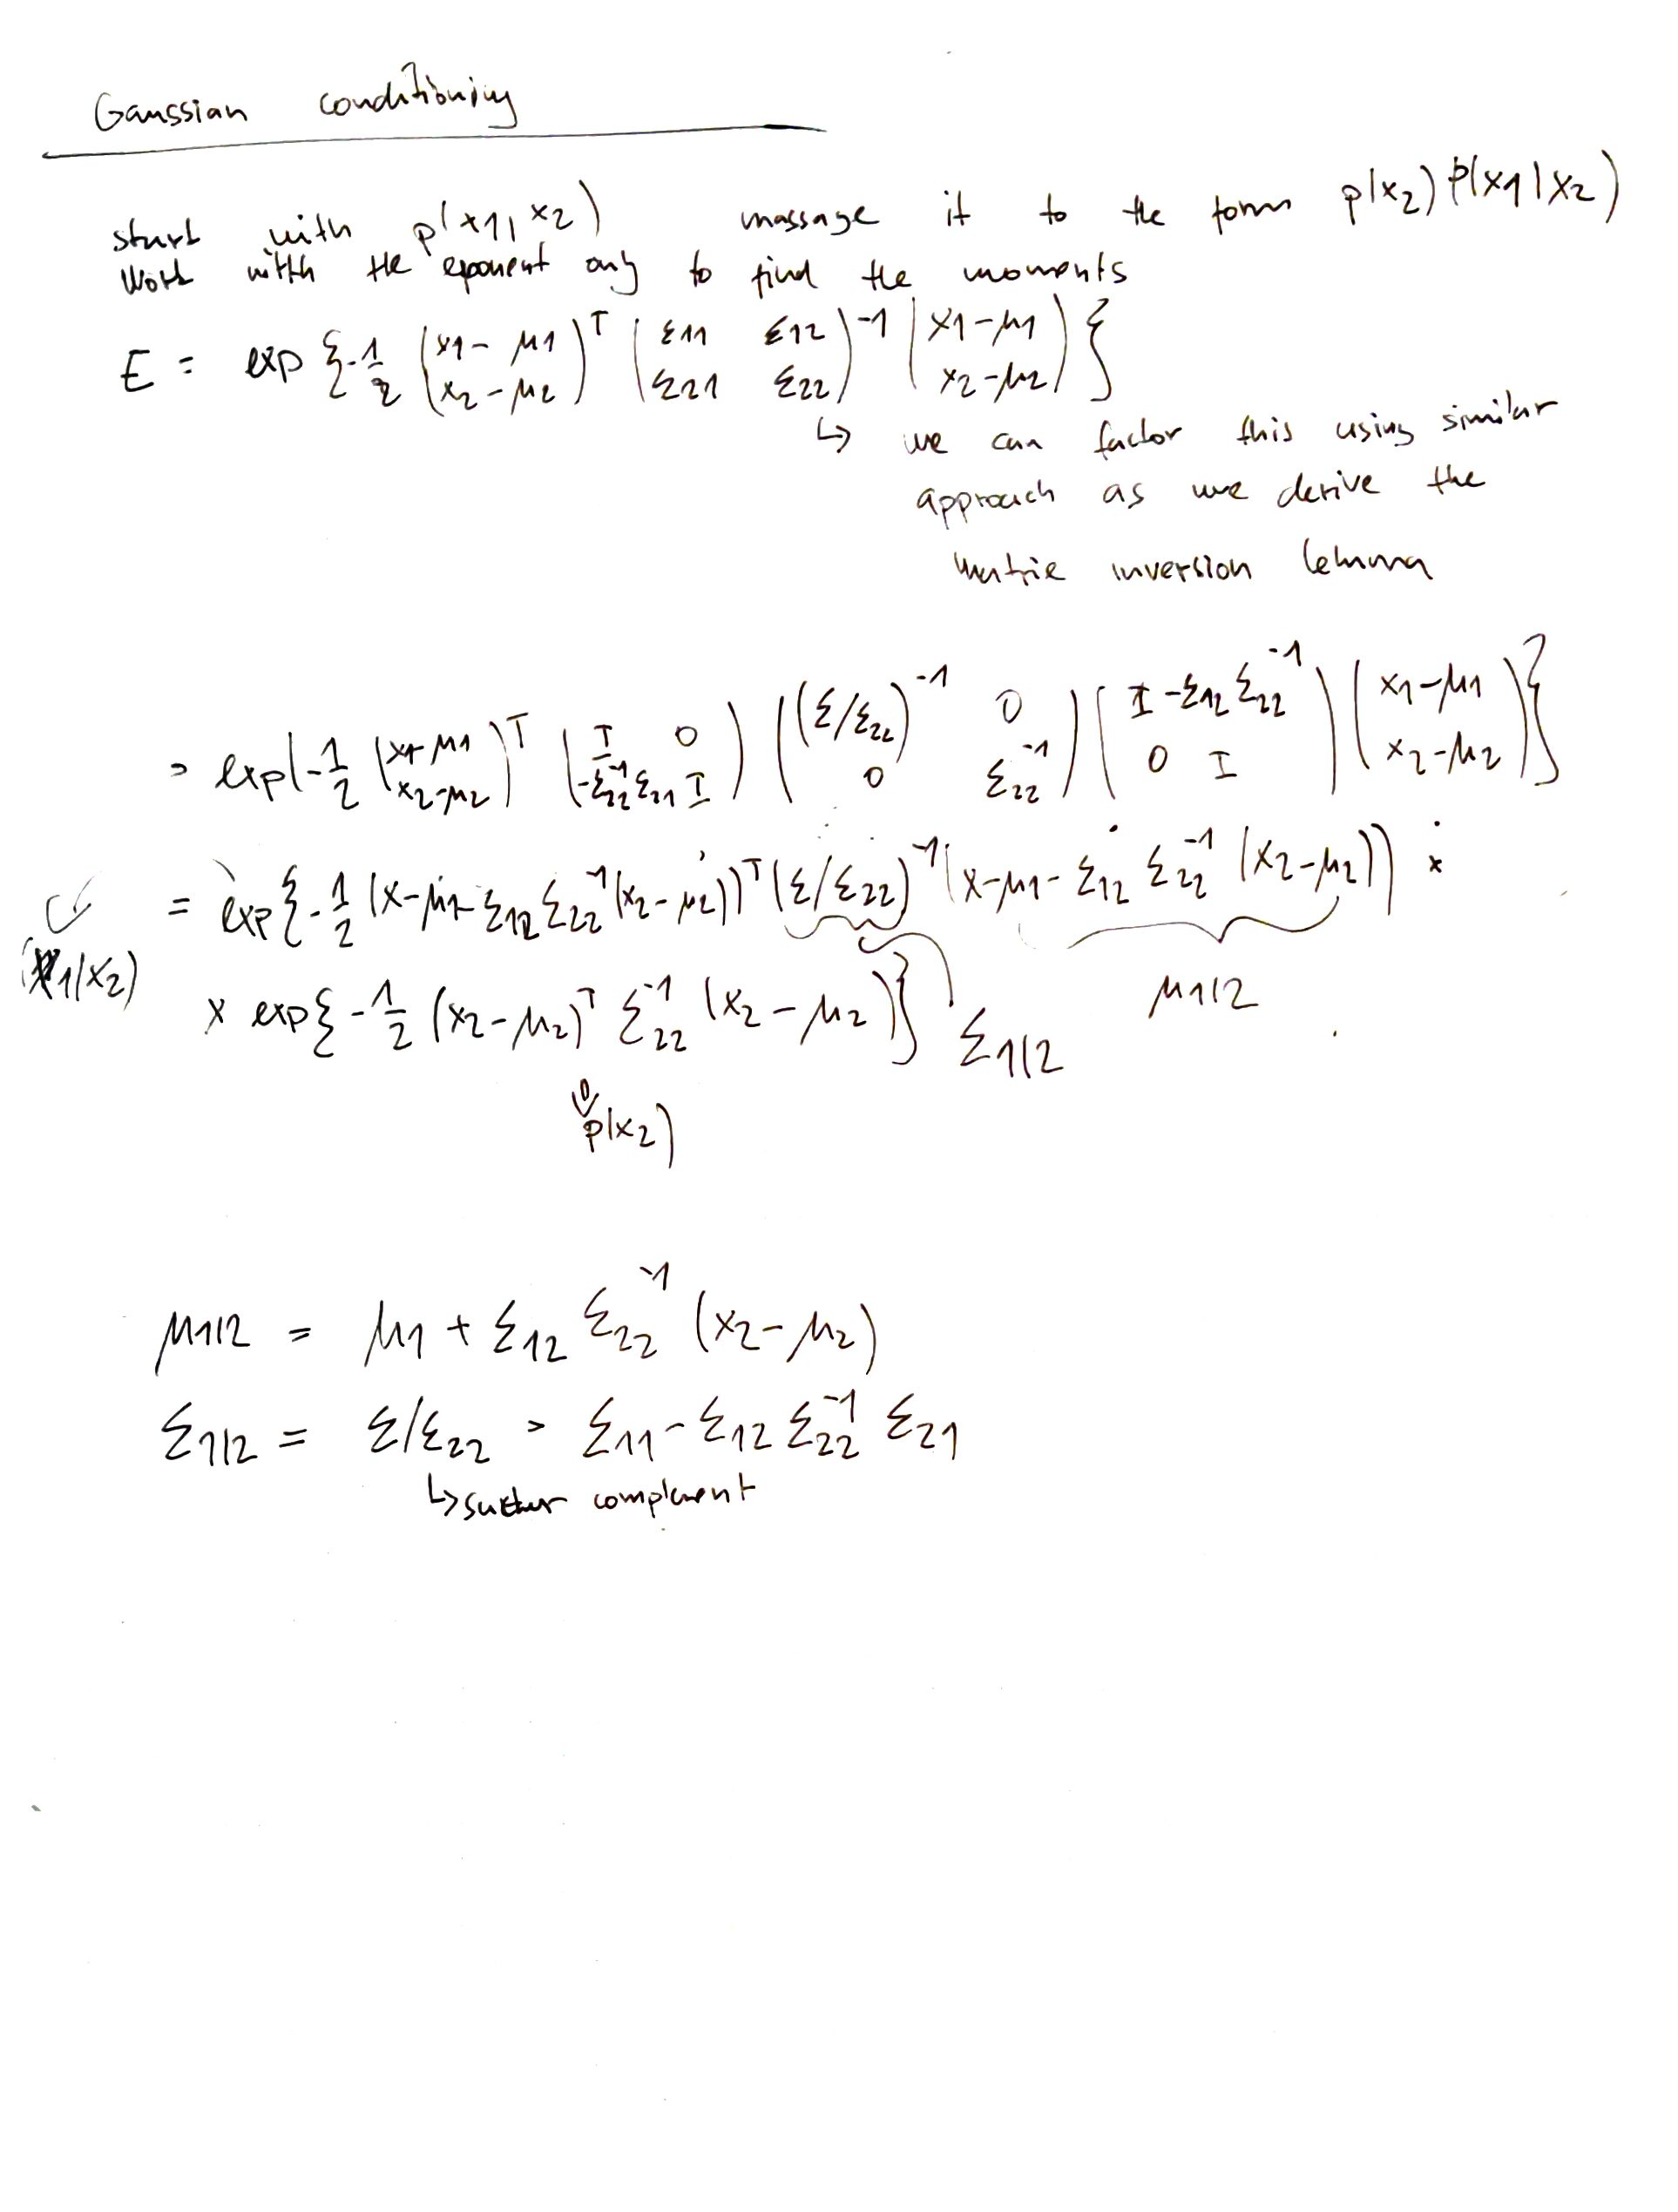 Gaussian conditioning
start with p(x1, x2) massage it to the form p(x2) p(x1|x2)
Work witth the eponent only to find the moments
E = exp {-1/2 (x1-μ1 ; x2-μ2)^T (Σ11 Σ12 ; Σ21 Σ22)^-1 (x1-μ1 ; x2-μ2)}
↳ we can factor this using similar
approach as we derive the
matrix inversion lemma
= exp(-1/2 (x1-μ1 ; x2-μ2)^T (I 0 ; -Σ22^-1 Σ21 I) ((Σ/Σ22)^-1 0 ; 0 Σ22^-1) (I -Σ12 Σ22^-1 ; 0 I) (x1-μ1 ; x2-μ2)}
= exp{-1/2 (x-μ1-Σ12 Σ22^-1 (x2-μ2))^T (Σ/Σ22)^-1 (x-μ1-Σ12 Σ22^-1 (x2-μ2)) ×
(x1|x2)
× exp{-1/2 (x2-μ2)^T Σ22^-1 (x2-μ2)} Σ1|2 μ1|2
p(x2)
μ1|2 = μ1 + Σ12 Σ22^-1 (x2-μ2)
Σ1|2 = Σ/Σ22 = Σ11 - Σ12 Σ22^-1 Σ21
↳ complement